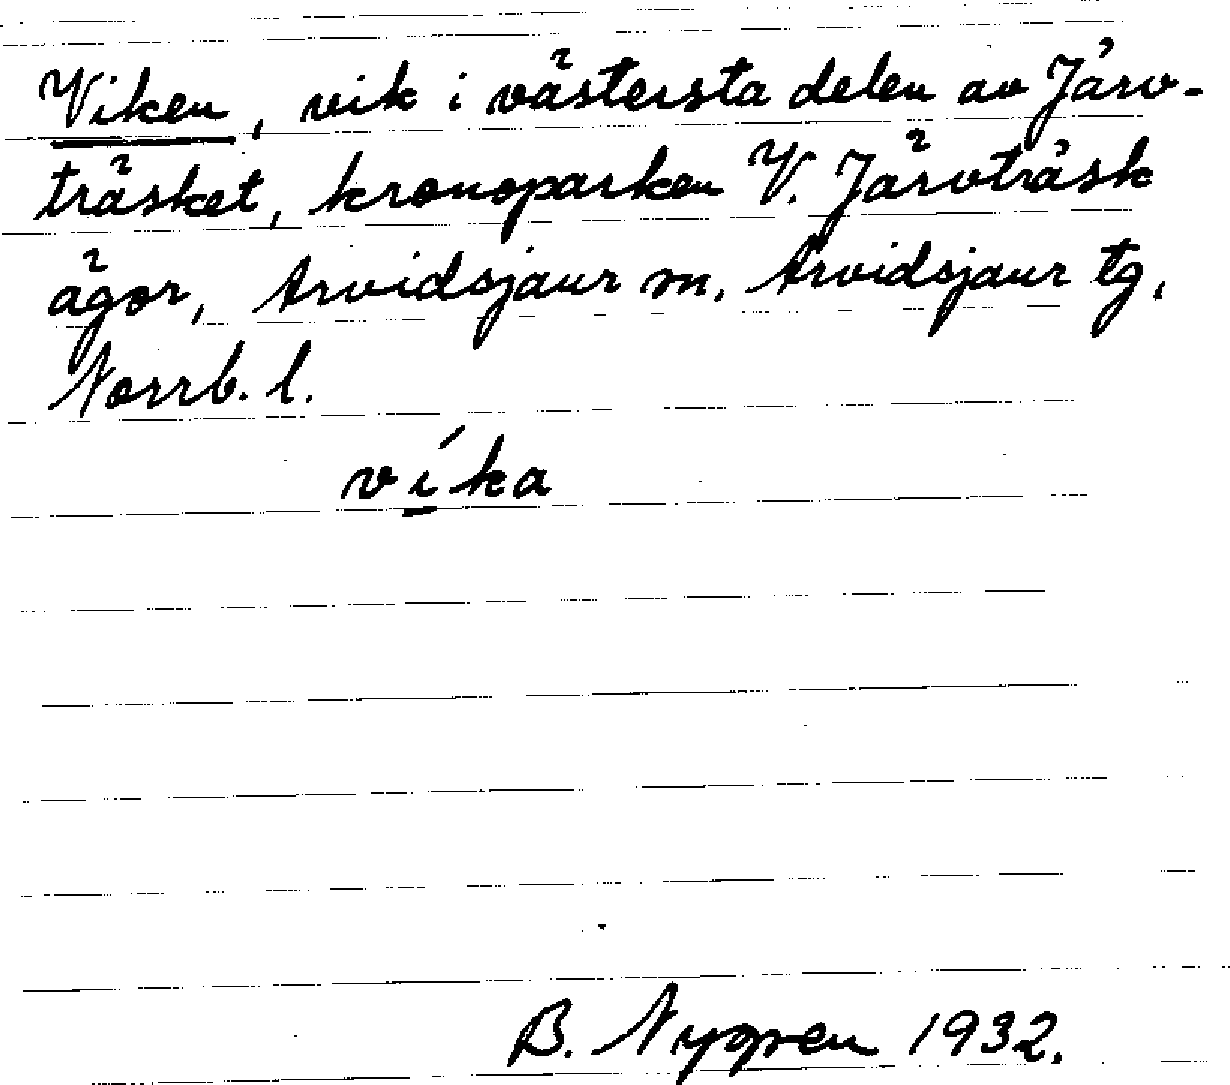 Viken, vik i västersta delen av Järv-
träsket, kronoparken V. Järvträsk
ägor, Arvidsjaur sn. Arvidsjaur tg.
Norrb. l.
víka
B. Nygren 1932.